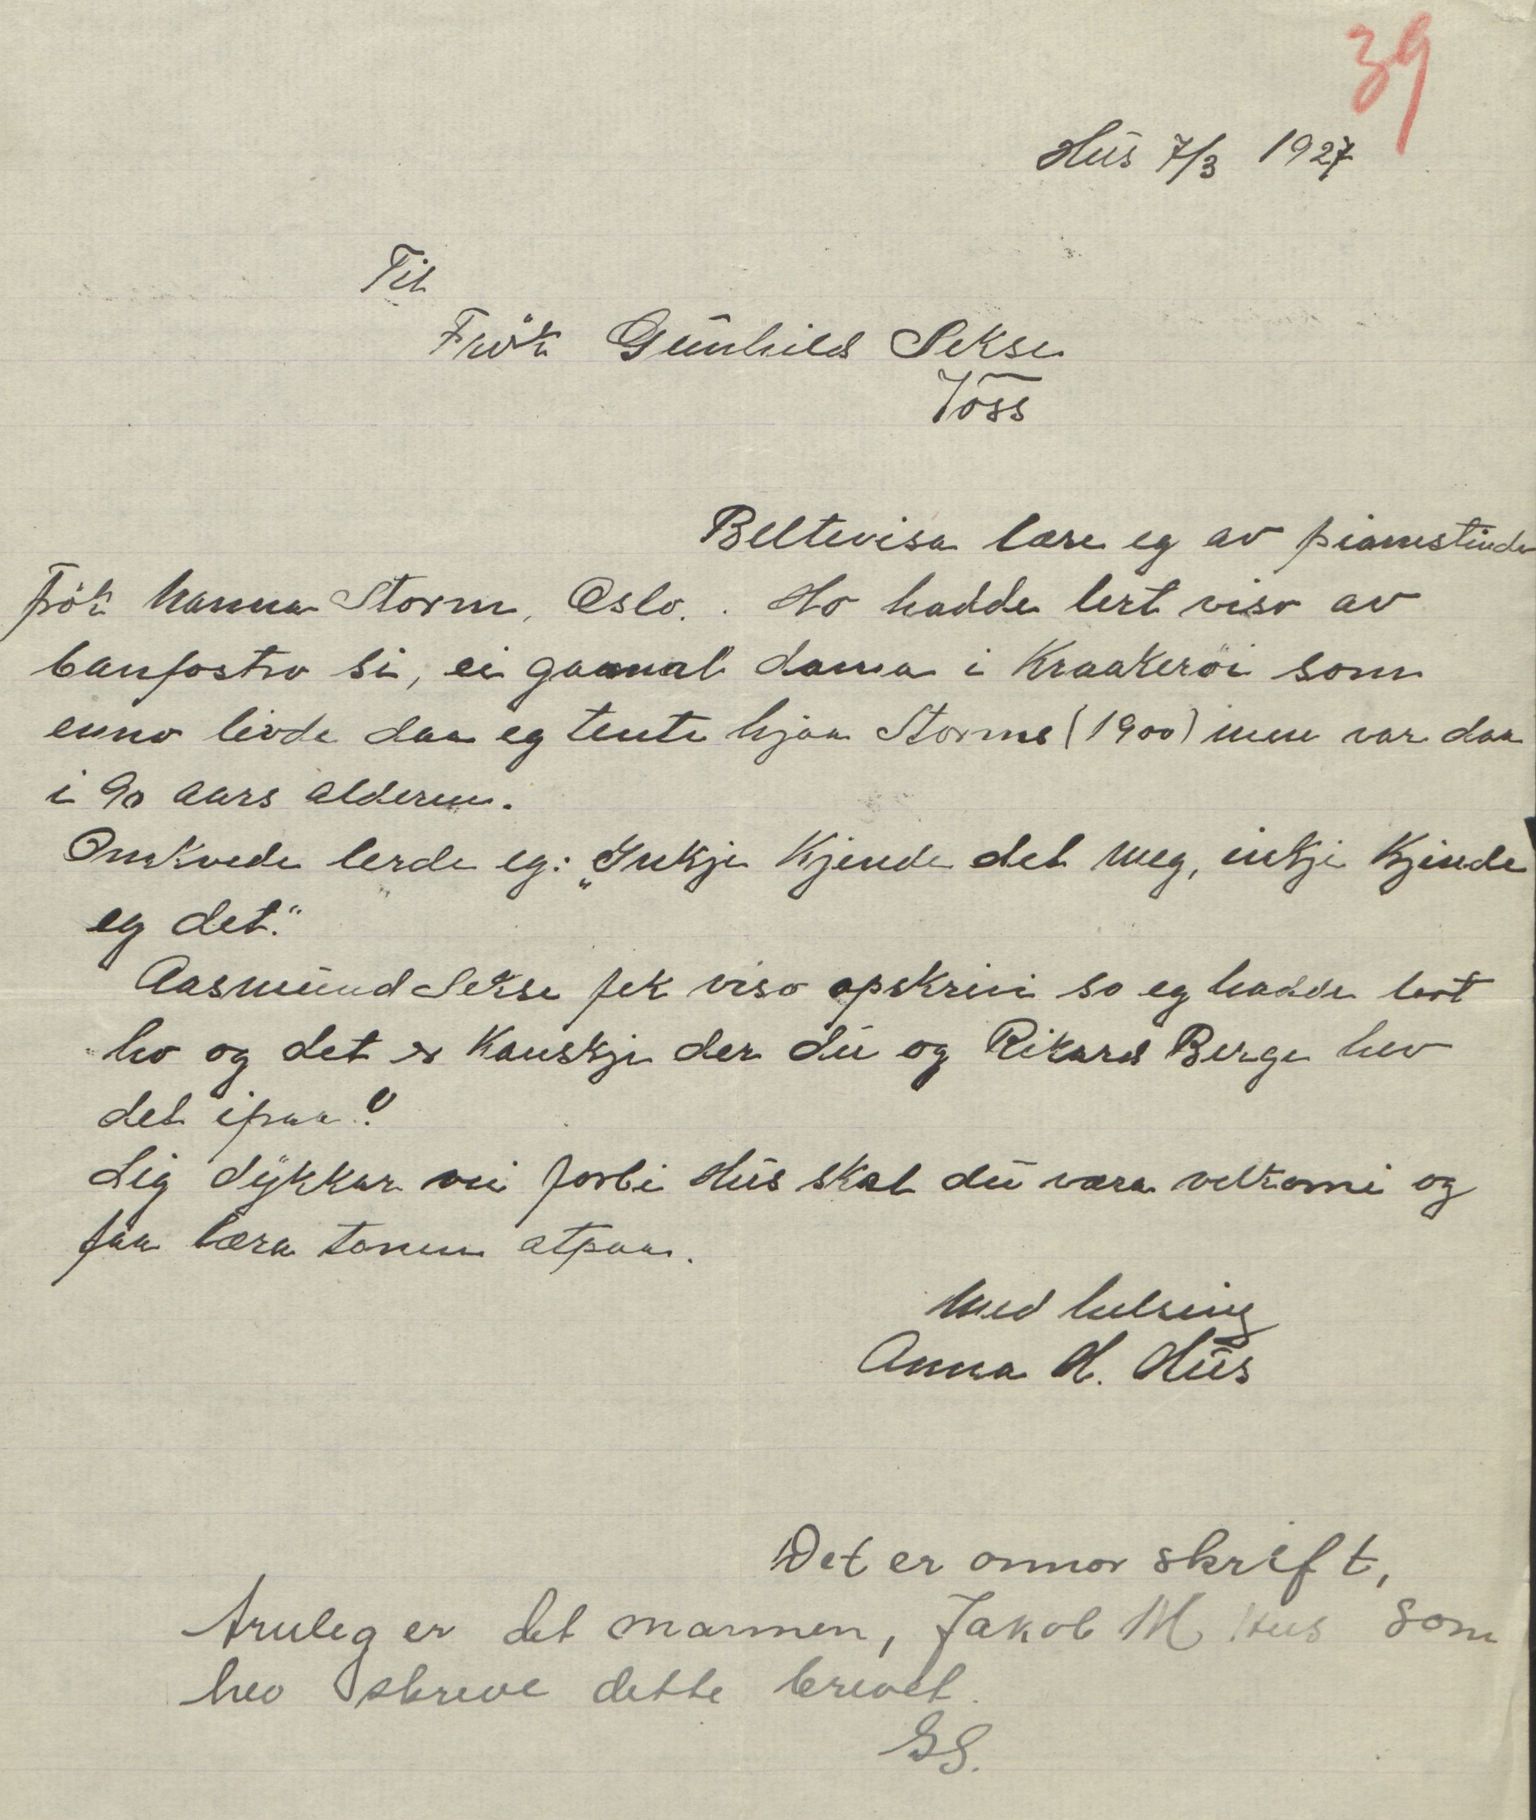 39
Hus 7/3 1927
Til
Frøk Gunhild Sekse
Voss
Beltevisa lære eg av pianistinde
frøk Hanna Storm, Oslo. Ho hadde lert viso av
banfostro si, ei gaamal dama i Kraakerøi som
enno livde daa eg tente hjaa Storms (1900) men var daa
i 90 aars alderen.
Omkvede lerde eg: „Inkje kjende det meg, inkje kjende
eg det."
Aasmund Sekse fek viso opskrivi so eg hadde lert
ho og det er kanskje der du og Rikard Berge hev
det ifraa?
Lig dykkar vei forbi Hus skal du væra velkomi og
faa læra tonen atpaa.
Med helsing
Anna H. Hus
Det er onnor skrift,
truleg er det mannen, Jakob M Hus som
hev skreve dette brevet.
GS.